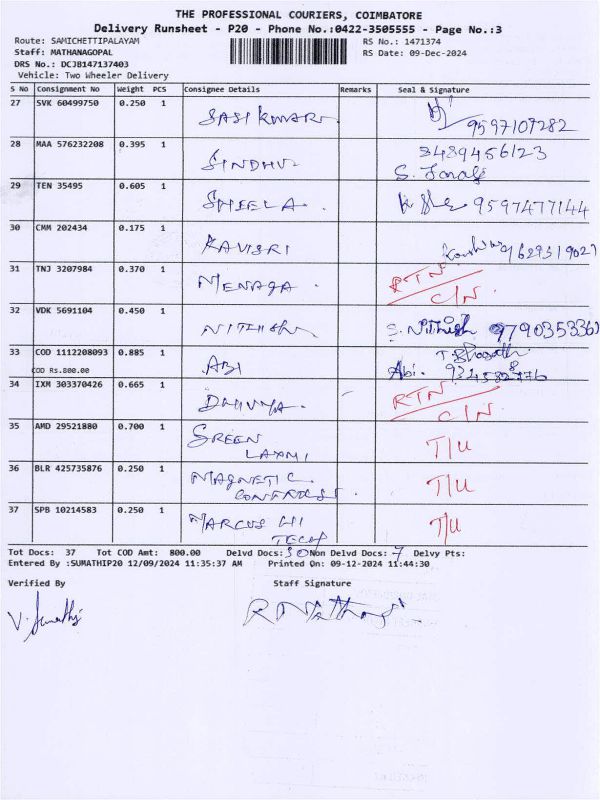 THE PROFESSIONAL COURIERS, COIMBATORE
Delivery Runsheet - P20 - Phone No.:0422-3505555 - Page No.:3
Route: SAMICHETTIPALAYAM RS No.: 1471374
Staff: MATHANAGOPAL RS Date: 09-Dec-2024
DRS No.: DCJB147137403
Vehicle: Two Wheeler Delivery
S No Consignment No Weight PCS Consignee Details Remarks Seal & Signature
27 SVK 60499750 0.250 1 SASI KUMAR 9597109282
28 MAA 576232208 0.395 1 SINDHU 9489456123
29 TEN 35495 0.605 1 SHEELA. 9597477144
30 CMM 202434 0.175 1 KAVISRI 9629319027
31 TNJ 3207984 0.370 1 MENAGA RTN
C/N
32 VDK 5691104 0.450 1 S. Nithish 9790353361
33 COD 1112208093 0.885 1 ABI T Bharathi
COD Rs.800.00 Abi.
34 IXM 303370426 0.665 1 DHIVYA. RTN
C/N
35 AMD 29521880 0.700 1 GREEN LAXMI T/U
36 BLR 425735876 0.250 1 MAGNETIC T/U
37 SPB 10214583 0.250 1 MARCUS T/U
Tot Docs: 37 Tot COD Amt: 800.00 Delvd Docs: 30 Non Delvd Docs: 7 Delvy Pts:
Entered By :SUMATHIP20 12/09/2024 11:35:37 AM Printed On: 09-12-2024 11:44:30
Verified By Staff Signature
V. Sumathi